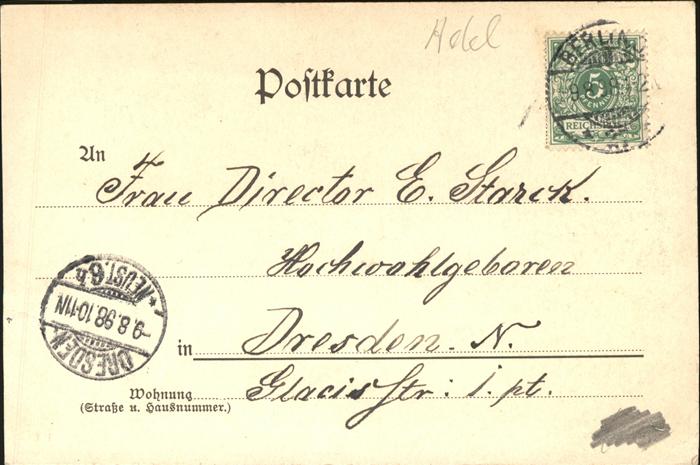 Adel
BERLIN
9.8.98
5
PFENNIG
REICHSPOST
Postkarte
An
Frau Director E. Starck.
Hochwohlgeboren
in Dresden-N.
Wohnung
(Straße u. Hausnummer.)
Glacisstr: 1. pt.
DRESDEN
-9.8.98.10-11N
*NEUST.6h